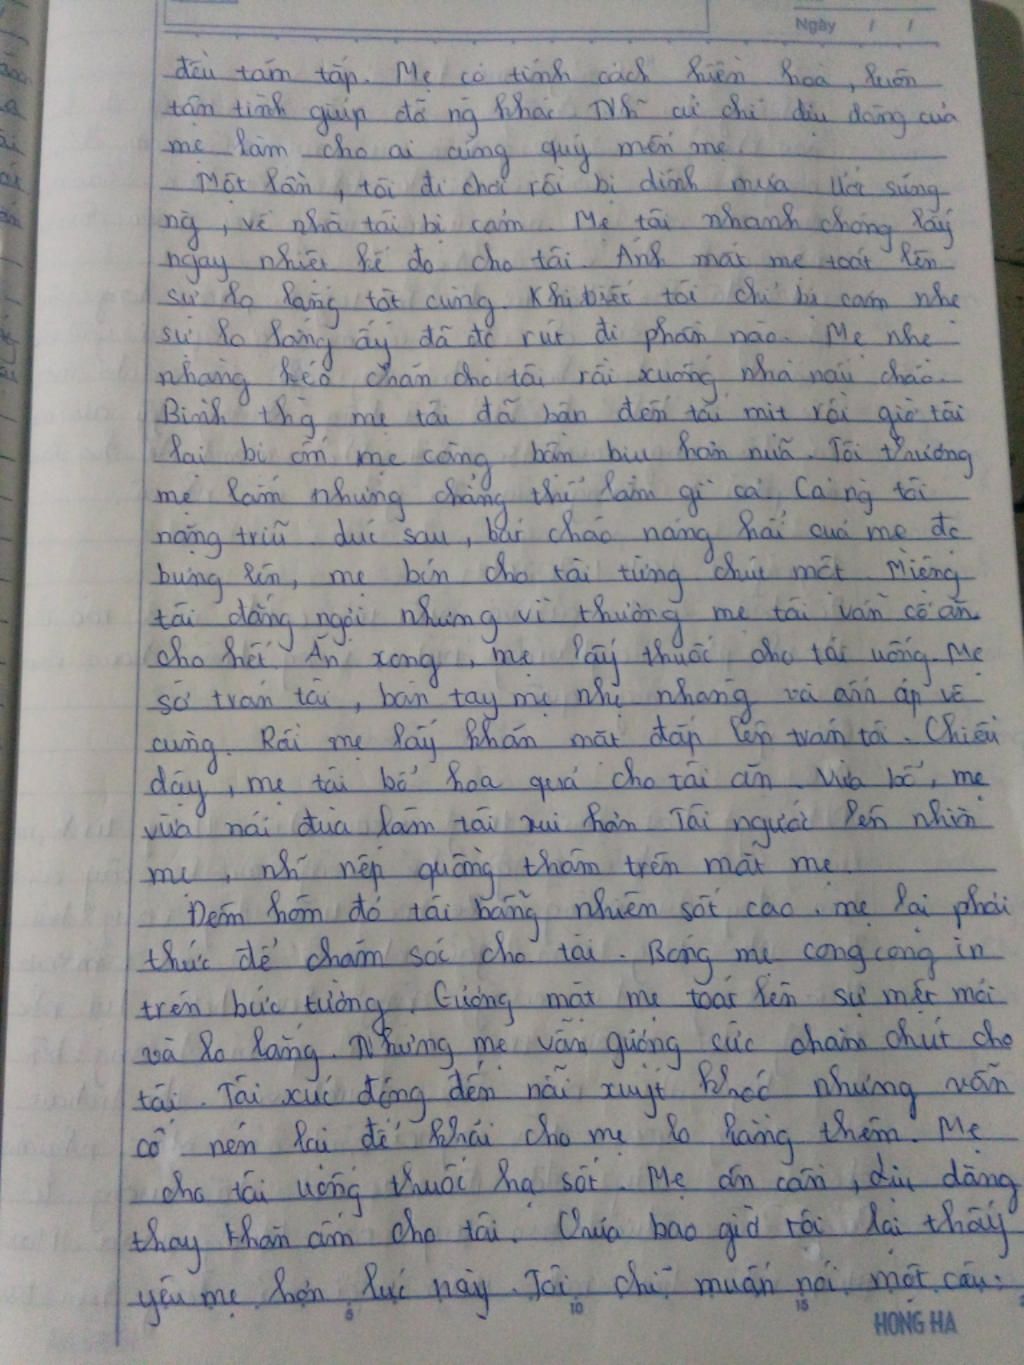 Ngày / /
đều tăm tắp. Mẹ có tính cách hiền hoà, luôn
tận tình giúp đỡ ng khác. Nh~ cử chỉ dịu dàng của
mẹ làm cho ai cũng quý mến mẹ
Một lần, tôi đi chơi rồi bị dính mưa. Ướt sũng
ng, về nhà tôi bị cảm. Mẹ tôi nhanh chóng lấy
ngay nhiệt kế đo cho tôi. Ánh mắt mẹ toát lên
sự lo lắng tột cùng. Khi biết tôi chỉ bị cảm nhẹ
sự lo lắng ấy đã đc rút đi phần nào. Mẹ nhẹ
nhàng kéo chăn cho tôi rồi xuống nhà nấu cháo.
Bình thg mẹ tôi đã bận đến tối mịt rồi giờ tôi
lại bị ốm mẹ càng bận bịu hơn nữa. Tôi thương
mẹ lắm nhưng chẳng thể làm gì cả. Cả ng tôi
nặng trĩu. lúc sau, bát cháo nóng hổi của mẹ đc
bưng lên, mẹ bón cho tôi từng chút một. Miệng
tôi đắng ngòi nhưng vì thương mẹ tôi vẫn cố ăn
cho hết. Ăn xong, mẹ lấy thuốc cho tôi uống. Mẹ
sờ trán tôi, bàn tay mẹ nhẹ nhàng và ấm áp vô
cùng. Rồi mẹ lấy khăn mát đắp lên trán tôi. Chiều
dậy, mẹ tôi bổ hoa quả cho tôi ăn. Vừa bổ, mẹ
vừa nói đùa làm tôi vui hơn. Tôi ngước lên nhìn
mẹ, nh~ nếp quầng thâm trên mắt mẹ.
Đêm hôm đó tôi bỗng nhiên sốt cao. mẹ lại phải
thức để chăm sóc cho tôi. Bóng mẹ cong cong in
trên bức tường. Gương mặt mẹ toát lên sự mệt mỏi
và lo lắng. Nhưng mẹ vẫn gượng sức chăm chút cho
tôi. Tôi xúc động đến nỗi xuýt khóc nhưng vẫn
cố nén lại để khỏi cho mẹ lo lắng thêm. Mẹ
cho tôi uống thuốc hạ sốt. Mẹ ân cần, dịu dàng
thay khăn ấm cho tôi. Chưa bao giờ tôi lại thấy
yêu mẹ hơn lúc này. Tôi chỉ muốn nói một câu:
5 10 15
HONG HA